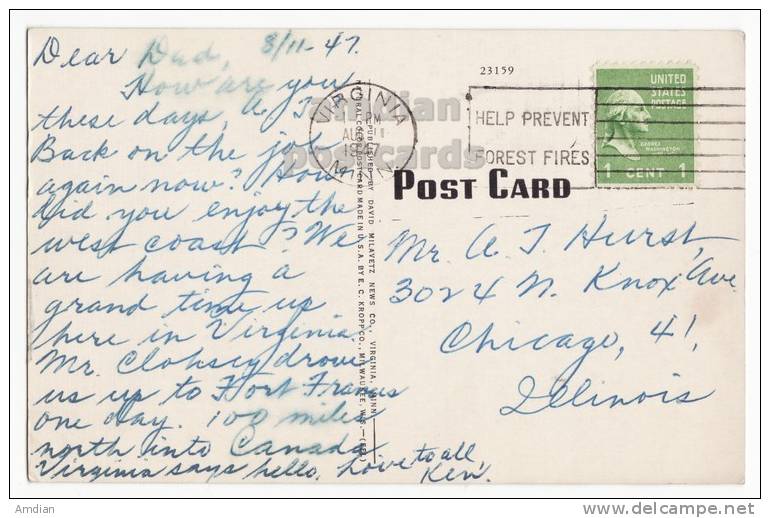 Dear Dad, 8/11-47.
How are you
these days, A.J.
Back on the job
again now? How
did you enjoy the
west coast? We
are having a
grand time up
here in Virginia.
Mr. Clohsey drove
us up to Fort Francis
one day. 100 miles
north into Canada
Virginia says hello, Love to all
Ken.
PUBLISHED BY DAVID MILAVETZ NEWS CO., VIRGINIA, MINN.
COLOR POST CARD MADE IN U.S.A. BY E. C. KROPP CO., MILWAUKEE, WIS.
23159
VIRGINIA
PM
AUG 11
MINN.
HELP PREVENT
FOREST FIRES
UNITED
STATES
POSTAGE
GEORGE
WASHINGTON
1 CENT 1
POST CARD
Mr. A. J. Hurst,
3024 N. Knox Ave
Chicago, 41,
Illinois
amdian
postcards
Amdian
delcampe.net